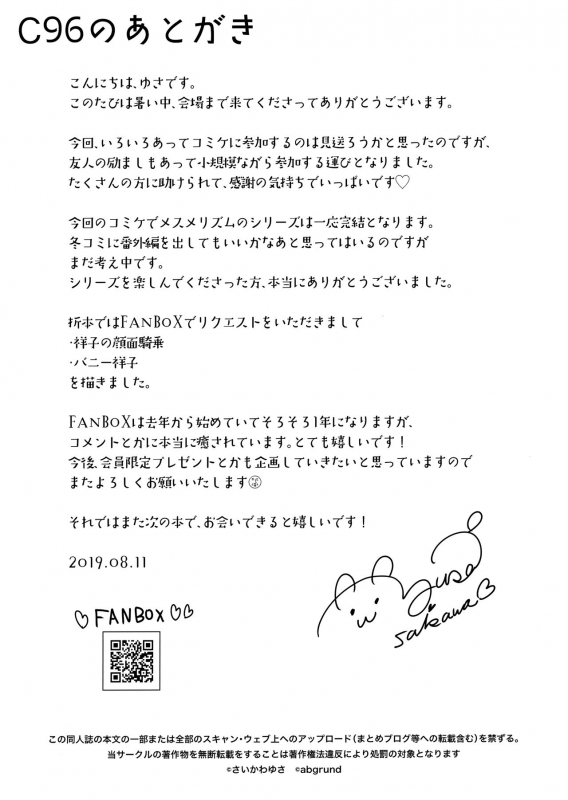 C96のあとがき
こんにちは、ゆさです。
このたびは暑い中、会場まで来てくださってありがとうございます。
今回、いろいろあってコミケに参加するのは見送ろうかと思ったのですが、
友人の励ましもあって小規模ながら参加する運びとなりました。
たくさんの方に助けられて、感謝の気持ちでいっぱいです♡
今回のコミケでメスメリズムのシリーズは一応完結となります。
冬コミに番外編を出してもいいかなあと思ってはいるのですが
まだ考え中です。
シリーズを楽しんでくださった方、本当にありがとうございました。
折本ではFANBOXでリクエストをいただきまして
・祥子の顔面騎乗
・バニー祥子
を描きました。
FANBOXは去年から始めていてそろそろ1年になりますが、
コメントとかに本当に癒されています。とても嬉しいです！
今後、会員限定プレゼントとかも企画していきたいと思っていますので
またよろしくお願いいたします
それではまた次の本で、お会いできると嬉しいです！
2019.08.11
Yusa
Saikawa♡
♡FANBOX♡♡
この同人誌の本文の一部または全部のスキャン・ウェブ上へのアップロード（まとめブログ等への転載含む）を禁ずる。
当サークルの著作物を無断転載をすることは著作権法違反により処罰の対象となります
©さいかわゆさ ©abgrund